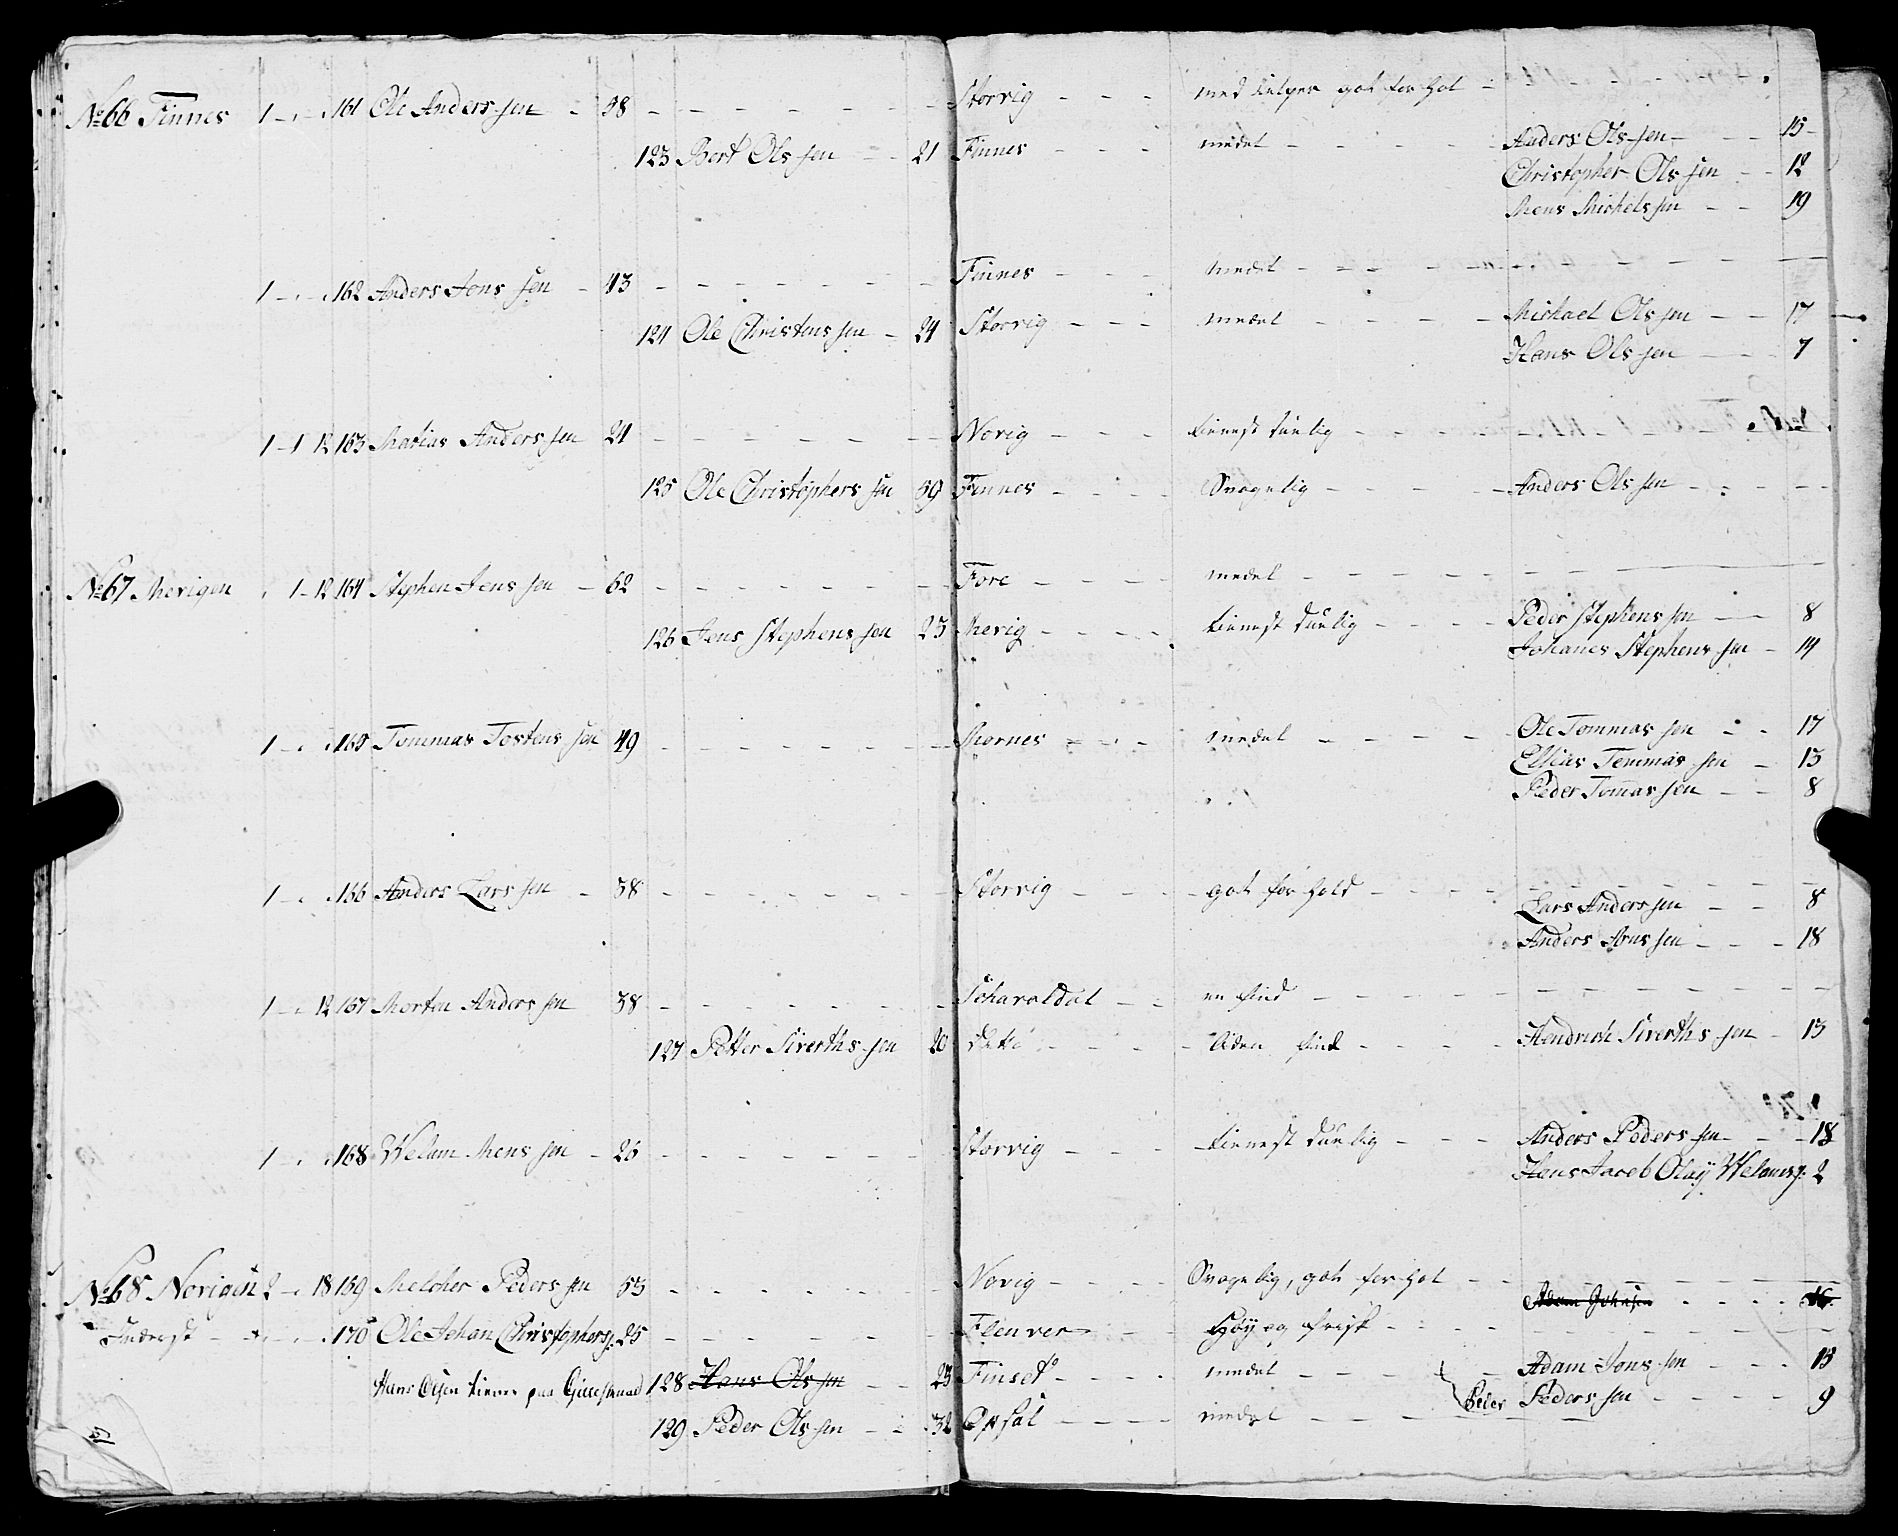 No 66 Finnes 1 - . - . 161 Ole Anders sen - 38 - - - - Storvig - - - med helper got for hol -
123 Bert Ols sen - - 21 Finnes - - - medet - - - - Anders Ols sen - - - 15
Christopher Ols sen - - 12
Mens Michels sen - - 19
1 - . - . 162 Anders Jons sen - 43 - - - - Finnes - - - medet - - - -
124 Ole Christens sen - 24 Storvig - - - medet - - - - Michael Ols sen - - 17
Hans Ols sen - - - 7
1 - 1 12 163 Matias Anders sen 21 - - - - Norig - - - tienest duelig - - - -
125 Ole Christophers sen 39 Finnes - - - Svagelig - - - - Anders Ols sen - - -
No 67 Merigen 1 - 12 164 Stephen Jens sen - 62 - - - - Fore - - - medet - - - -
126 Jens Stephens sen 23 Merig - - - tienest duelig - - - - Peder Stephens sen - 8
Johanes Stephens sen - 14
1 - . . 165 Tommas Tostens sen 49 - - - - Mornes - - - medet - - - - Ole Tommas sen - - 17
Ellias Temmas sen - 13
Peder Tomas sen - - 8
1 - . . 166 Anders Lars sen - 38 - - - - Storvig - - - got for hold - - - -
Lars Anders sen - - 8
Anders Jons sen - - - 18
1 - . 12 167 Morten Anders sen 38 - - - - Scharoldal - - en find - - - -
127 Petter Siverths sen 20 dete - - - liden find - - - - Hendrich Siverths sen - 13
1 - . . 168 Welam Mens sen - 26 - - - - Storvig - - - tienest duelig - - - Anders Peders sen - - - 18
Hens Jacob Olay Welams s: 2
No 68 Norigen 2 - . 18 169 Melcher Peders sen 53 - - - - Norig - - - Svagelig, got for hol - -
Adam Johnsen - - - 16
Inderst - - . . 170 Ole Johan Christophers s: 25 - - - - Flenver - - - høy og frisk - - - -
Hans Olsen tiener paa Gillesaard 128 Hans Ols sen - - 23 Finset - - - medet - - - - Adam Jons sen - - - 13
129 Peder Ols sen - - 32 Opsal - - - medet - - - - Peder Peders sen - - - 9